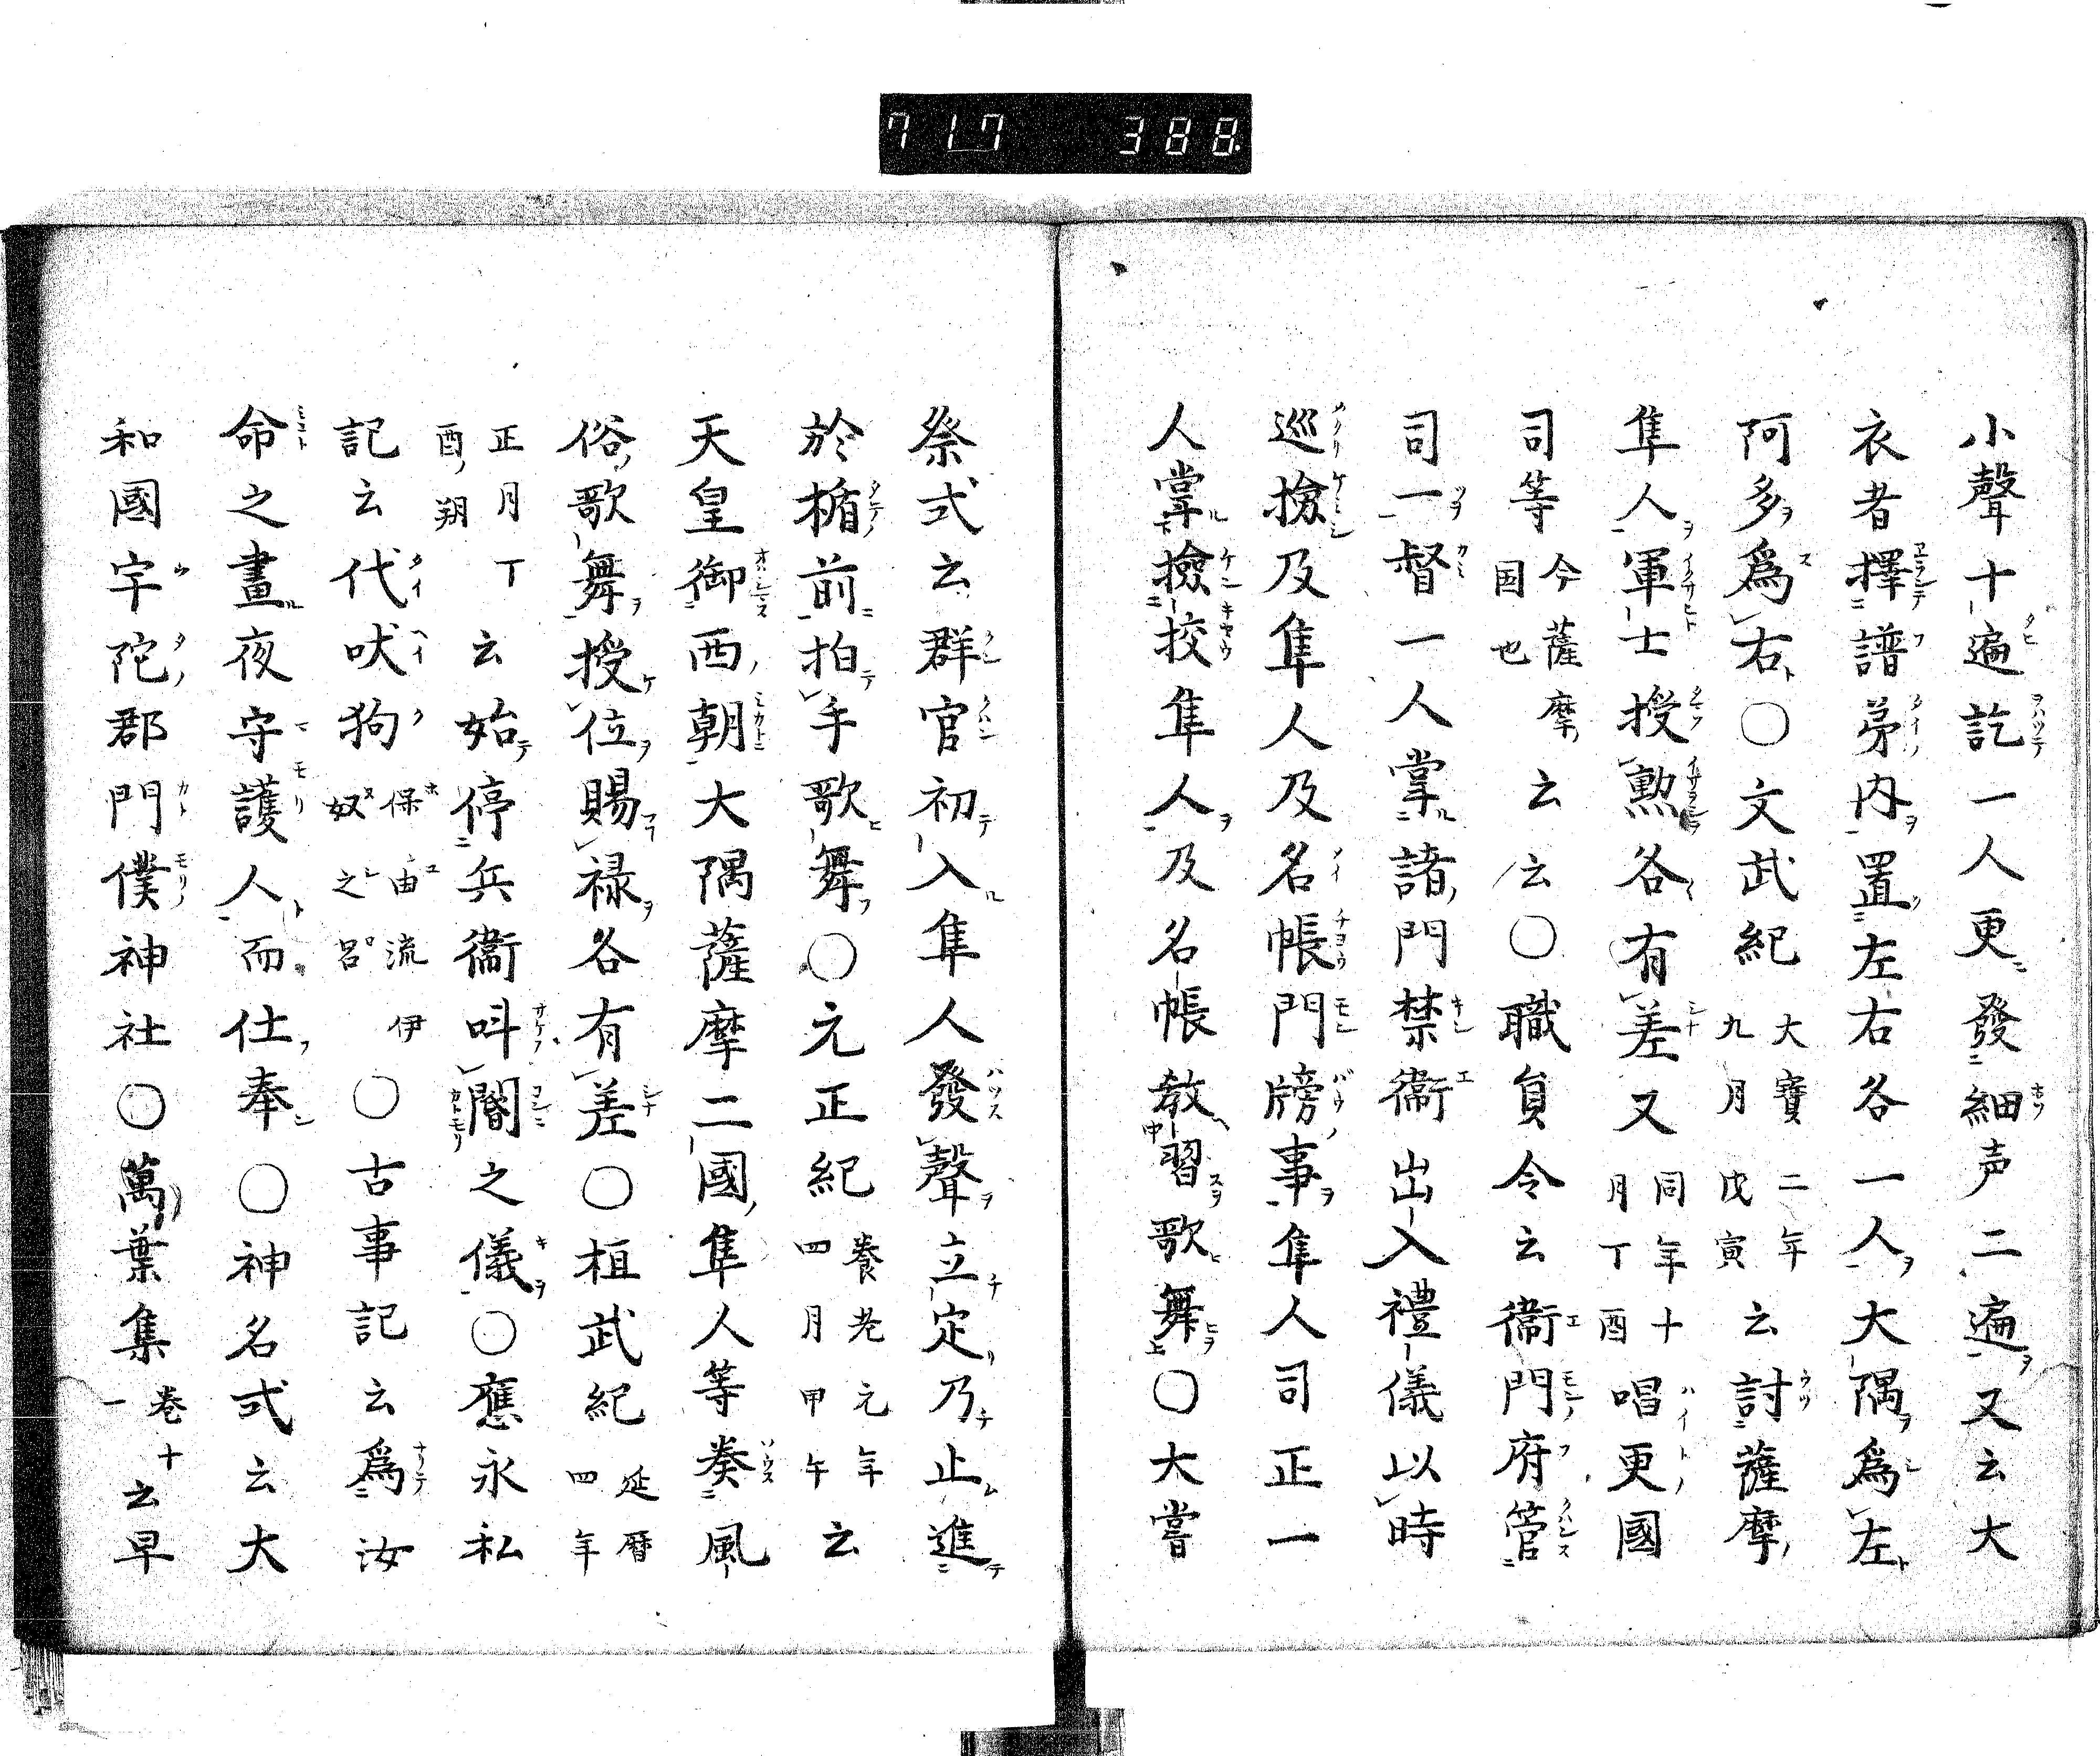 717 388
小聲十遍訖一人更發細声二遍又云大
衣者擇譜苐内置左右各一人大隅爲左
阿多爲右〇文武紀大寶二年九月戊寅云討薩摩
隼人軍士授勲各有差又同年十月丁酉唱更國
司等今薩摩国也云云〇職負令云衞門府管
司一督一人掌諸門禁衞出入禮儀以時
巡撿及隼人及名帳門牓事隼人司正一
人掌撿挍隼人及名帳敎習歌舞〇大嘗
祭式云群官初入隼人發聲立定乃止進
於楯前拍手歌舞〇元正紀養老元年四月甲午云
天皇御西朝大隅薩摩二國隼人等奏風
俗歌舞授位賜禄各有差〇桓武紀延暦四年
正月丁酉朔云始停兵衞叫閽之儀〇應永私
記云代吠狗保由流伊奴之呂〇古事記云爲汝
命之晝夜守護人而仕奉〇神名式云大
和國宇陀郡門僕神社〇萬葉集巻十一云早